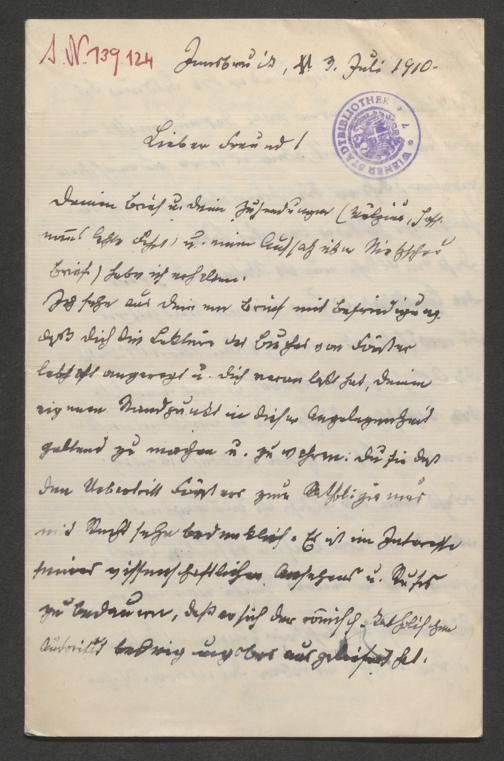 I. N. 139.124
Innsbruck, 3. Juli 1910.
WIENER STADTBIBLIOTHEK
Lieber Freund!
Deinen Brief u. deine Zusendungen
u. einen Aufsatz über Nietzsches
Briefe) habe ich erhalten.
Ich sehe aus deinem Brief mit Befriedigung,
daß dich die Lektüre des Buches von Förster
lebhaft angeregt u. dich veranlaßt hat, deinen
eigenen Standpunkt in dieser Angelegenheit
geltend zu machen u. zu wahren.
den Uebertritt Försters zum Katholizismus
mit Recht sehr bedenklich. Es ist im Interesse
seines wissenschaftlichen Ansehens u. Rufes
zu bedauern, daß er sich der römisch-katholischen
Autorität ausgeliefert hat.